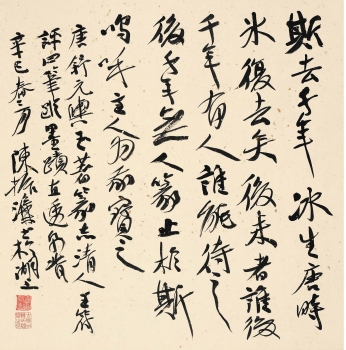 斯去千年冰生唐時
氷復去矣後来者誰後
千年有人誰能待之
後千年無人篆止於斯
嗚呼主人為吾寶之
唐舒元輿玉箸篆志清人王
評墨蹟直透
辛巳春二月陳振濂於湖上